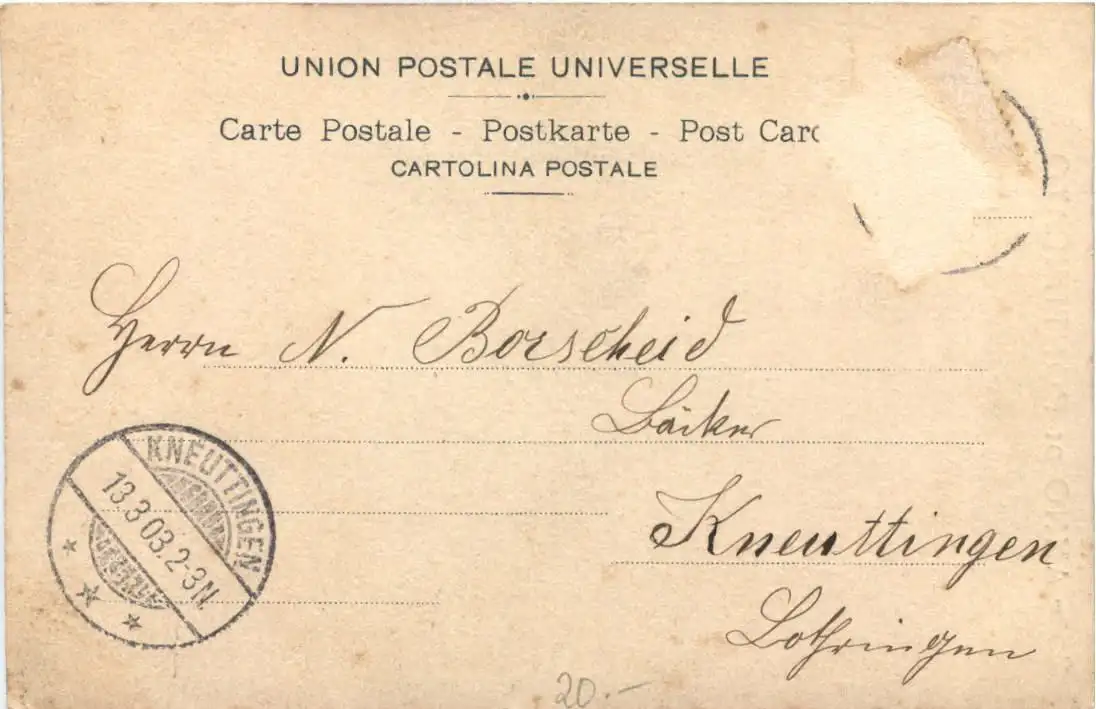 UNION POSTALE UNIVERSELLE
Carte Postale - Postkarte - Post Carc
CARTOLINA POSTALE
Herrn N. Borscheid
Bäcker
Kneuttingen
Lothringen
KNEUTTINGEN
13.3.03.2-3N.
20.-